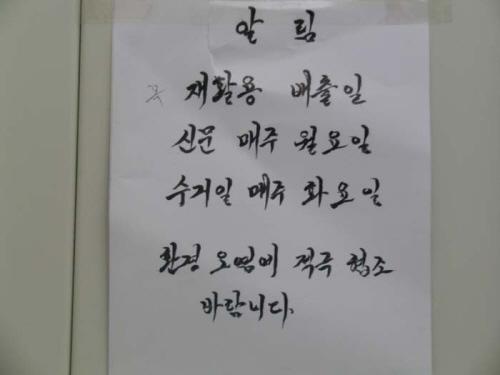 알 림
재활용 배출일
신문 매주 월요일
수거일 매주 화요일
환경 오염에 적극 협조
바랍니다.